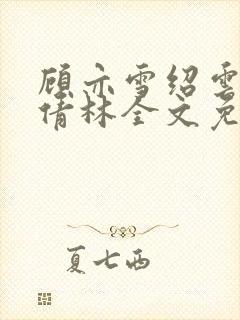 顾亦雪绍云
倩林全文免
夏七西